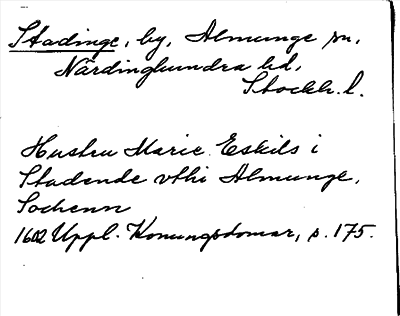 Stadinge, by, Almunge sn,
Närdinghundra hd,
Stockh. l.
Hustru Marie Eskils i
Stadende vthi Almunge,
Sochenn
1602 Uppl. Konungsdomar, s. 175.